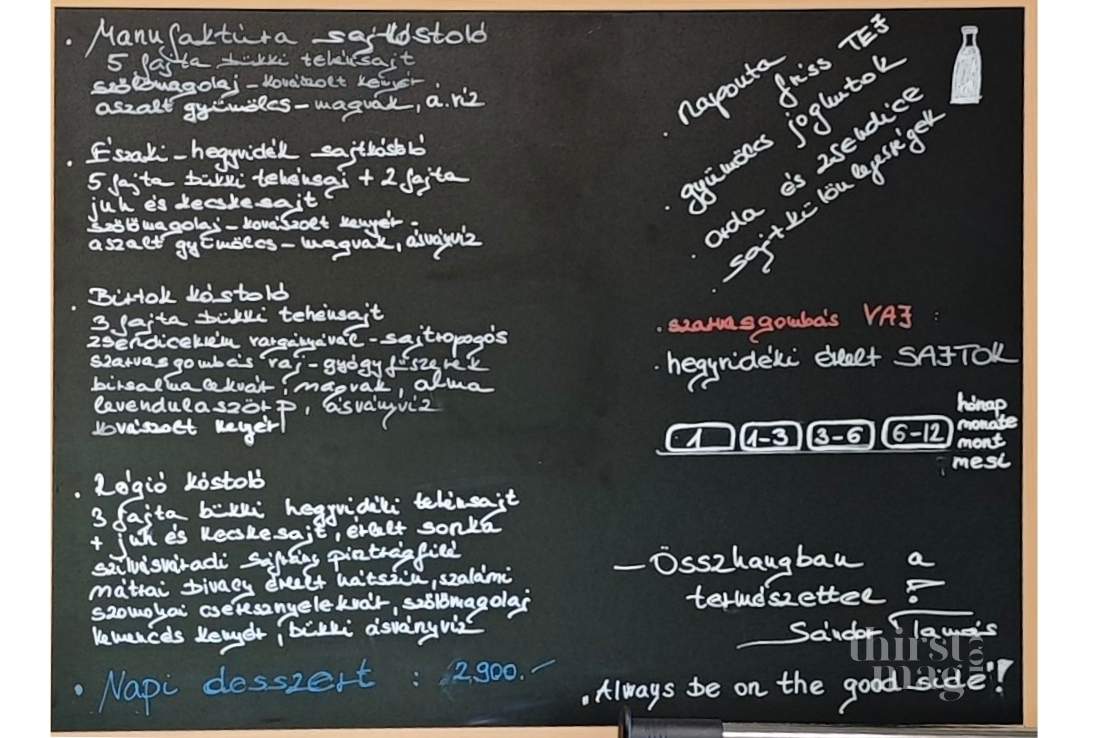 • Manufaktúra sajtkóstoló
5 fajta bükki tehénsajt
szőlőmagolaj - kovászolt kenyér
aszalt gyümölcs - magvak, á.víz
• Északi - hegyvidék sajtkóstoló
5 fajta bükki tehénsajt + 2 fajta
juh és kecskesajt
szőlőmagolaj - kovászolt kenyér -
aszalt gyümölcs - magvak, ásványvíz
• Birtok kóstoló
3 fajta bükki tehénsajt
zsendicekrém vargányával - sajtropogós
szarvasgombás vaj - gyógyfűszerek
birsalma lekvár, magvak, alma
levendulaszörp, ásványvíz
kovászolt kenyér
• Régió kóstoló
3 fajta bükki hegyvidéki tehénsajt
+ juh és kecskesajt, érlelt sonka
szilvásváradi sáfrány pisztrángfilé
mátrai bivaly érlelt hátszín, szalámi
szomolyai cseresznyelekvár, szőlőmagolaj
kemencés kenyér, bükki ásványvíz
• Napi desszert : 2,900.-
• naponta friss TEJ
• gyümölcs joghurtok
• orda és zsendice
• sajtkülönlegességek
• szarvasgombás VAJ :
• hegyvidéki érlelt SAJTOK
1 1-3 3-6 6-12
hónap
monate
mont
mesi
- Összhangban a
természettel
Sándor Tamás
"Always be on the good side"!
thirst
mag
.com